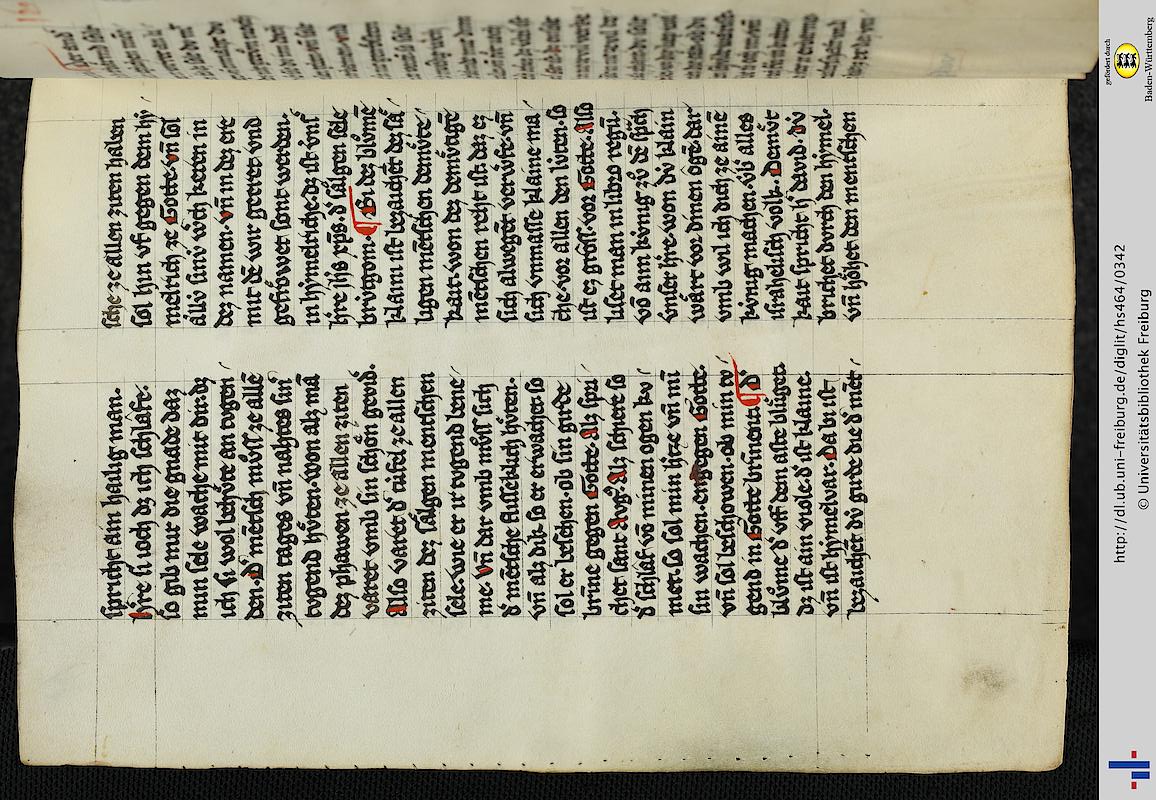 spricht ain hailig man.
h͛re si noch dz ich schlafe.
so gib mir die gnade daz
min sele wache mit dir. dz
ich si wol behv̊te an tvgen
den. D͛ mētsch mv̊ss ze allē
ziten tages vn̄ nahtes sin
tvgend hv̊ten. won alz mā
dez phawen ze allen ziten
varet vmb sin schön gevid.
Also varet d͛ tüfel ze allen
ziten dez sälgen mentschen
sele. wie er ir tvgend bene
me. Vn̄ dar vmb mv̊ss sich
d͛ mētsche flissecklich hv̊ten.
vn̄ alz dik so er erwachet so
sol er besehen. ob sin girde
brinne gegen Gotte. Alz spri
chet sant Avg͛. Alz schiere so
d͛ schlaf vō minen ogen kv
met. so sol min h͛tze vn̄ mī
sin wachen. engegen Gotte.
vn̄ sol beschowen. ob min tv
gend in Gotte brinnent. ¶ D͛
blv̊me d͛ vff dem aste blv̊get.
dz ist ain viole. d͛ ist klaine.
vn̄ ist hymelvar. Da bi ist
bezaichet dv̍ girde die d͛ mēt
sche ze allen ziten haben
sol hin vf gegen dem hy
melrich ze Gotte. vn̄ sol
allv̍ sinv̍ w͛ch keren in
dez namen. vn̄ in dez ere
mit dē wir geeret vnd
gefröwet sont werden.
in hymelriche. dz ist vnſ͛
h͛re jhs xp̄s. d͛ sälgen sele
brivtgon. ¶ Bi dez blv̊mē
klaini ist bezaichet dez sä
ligen mētschen demv̊te
kait. won dez demv̊tigē
mētschen reht ist daz ez
sich alwegēt verwirfe. vn̄
sich vnmasse klaine ma
che. vor allen den lv̍ten. so
ist ez gröss. vor Gotte. Also
liset man in libro regū.
vō aim kv́nig zv̊ dē spͣch
vnser h͛re. won dv̍ klain
wärt vor dinen ogē. dar
vmb wil ich dich ze ainē
kv́nig machen. v́b͛ alles
israhelsch volk. Demv̊t
kait spricht h͛ david. div
brichet dvrch den hymel.
vn̄ höhet den mentschen
http://dl.ub.uni-freiburg.de/diglit/hs464/0342
© Universitätsbibliothek Freiburg
gefördert durch
Baden-Württemberg